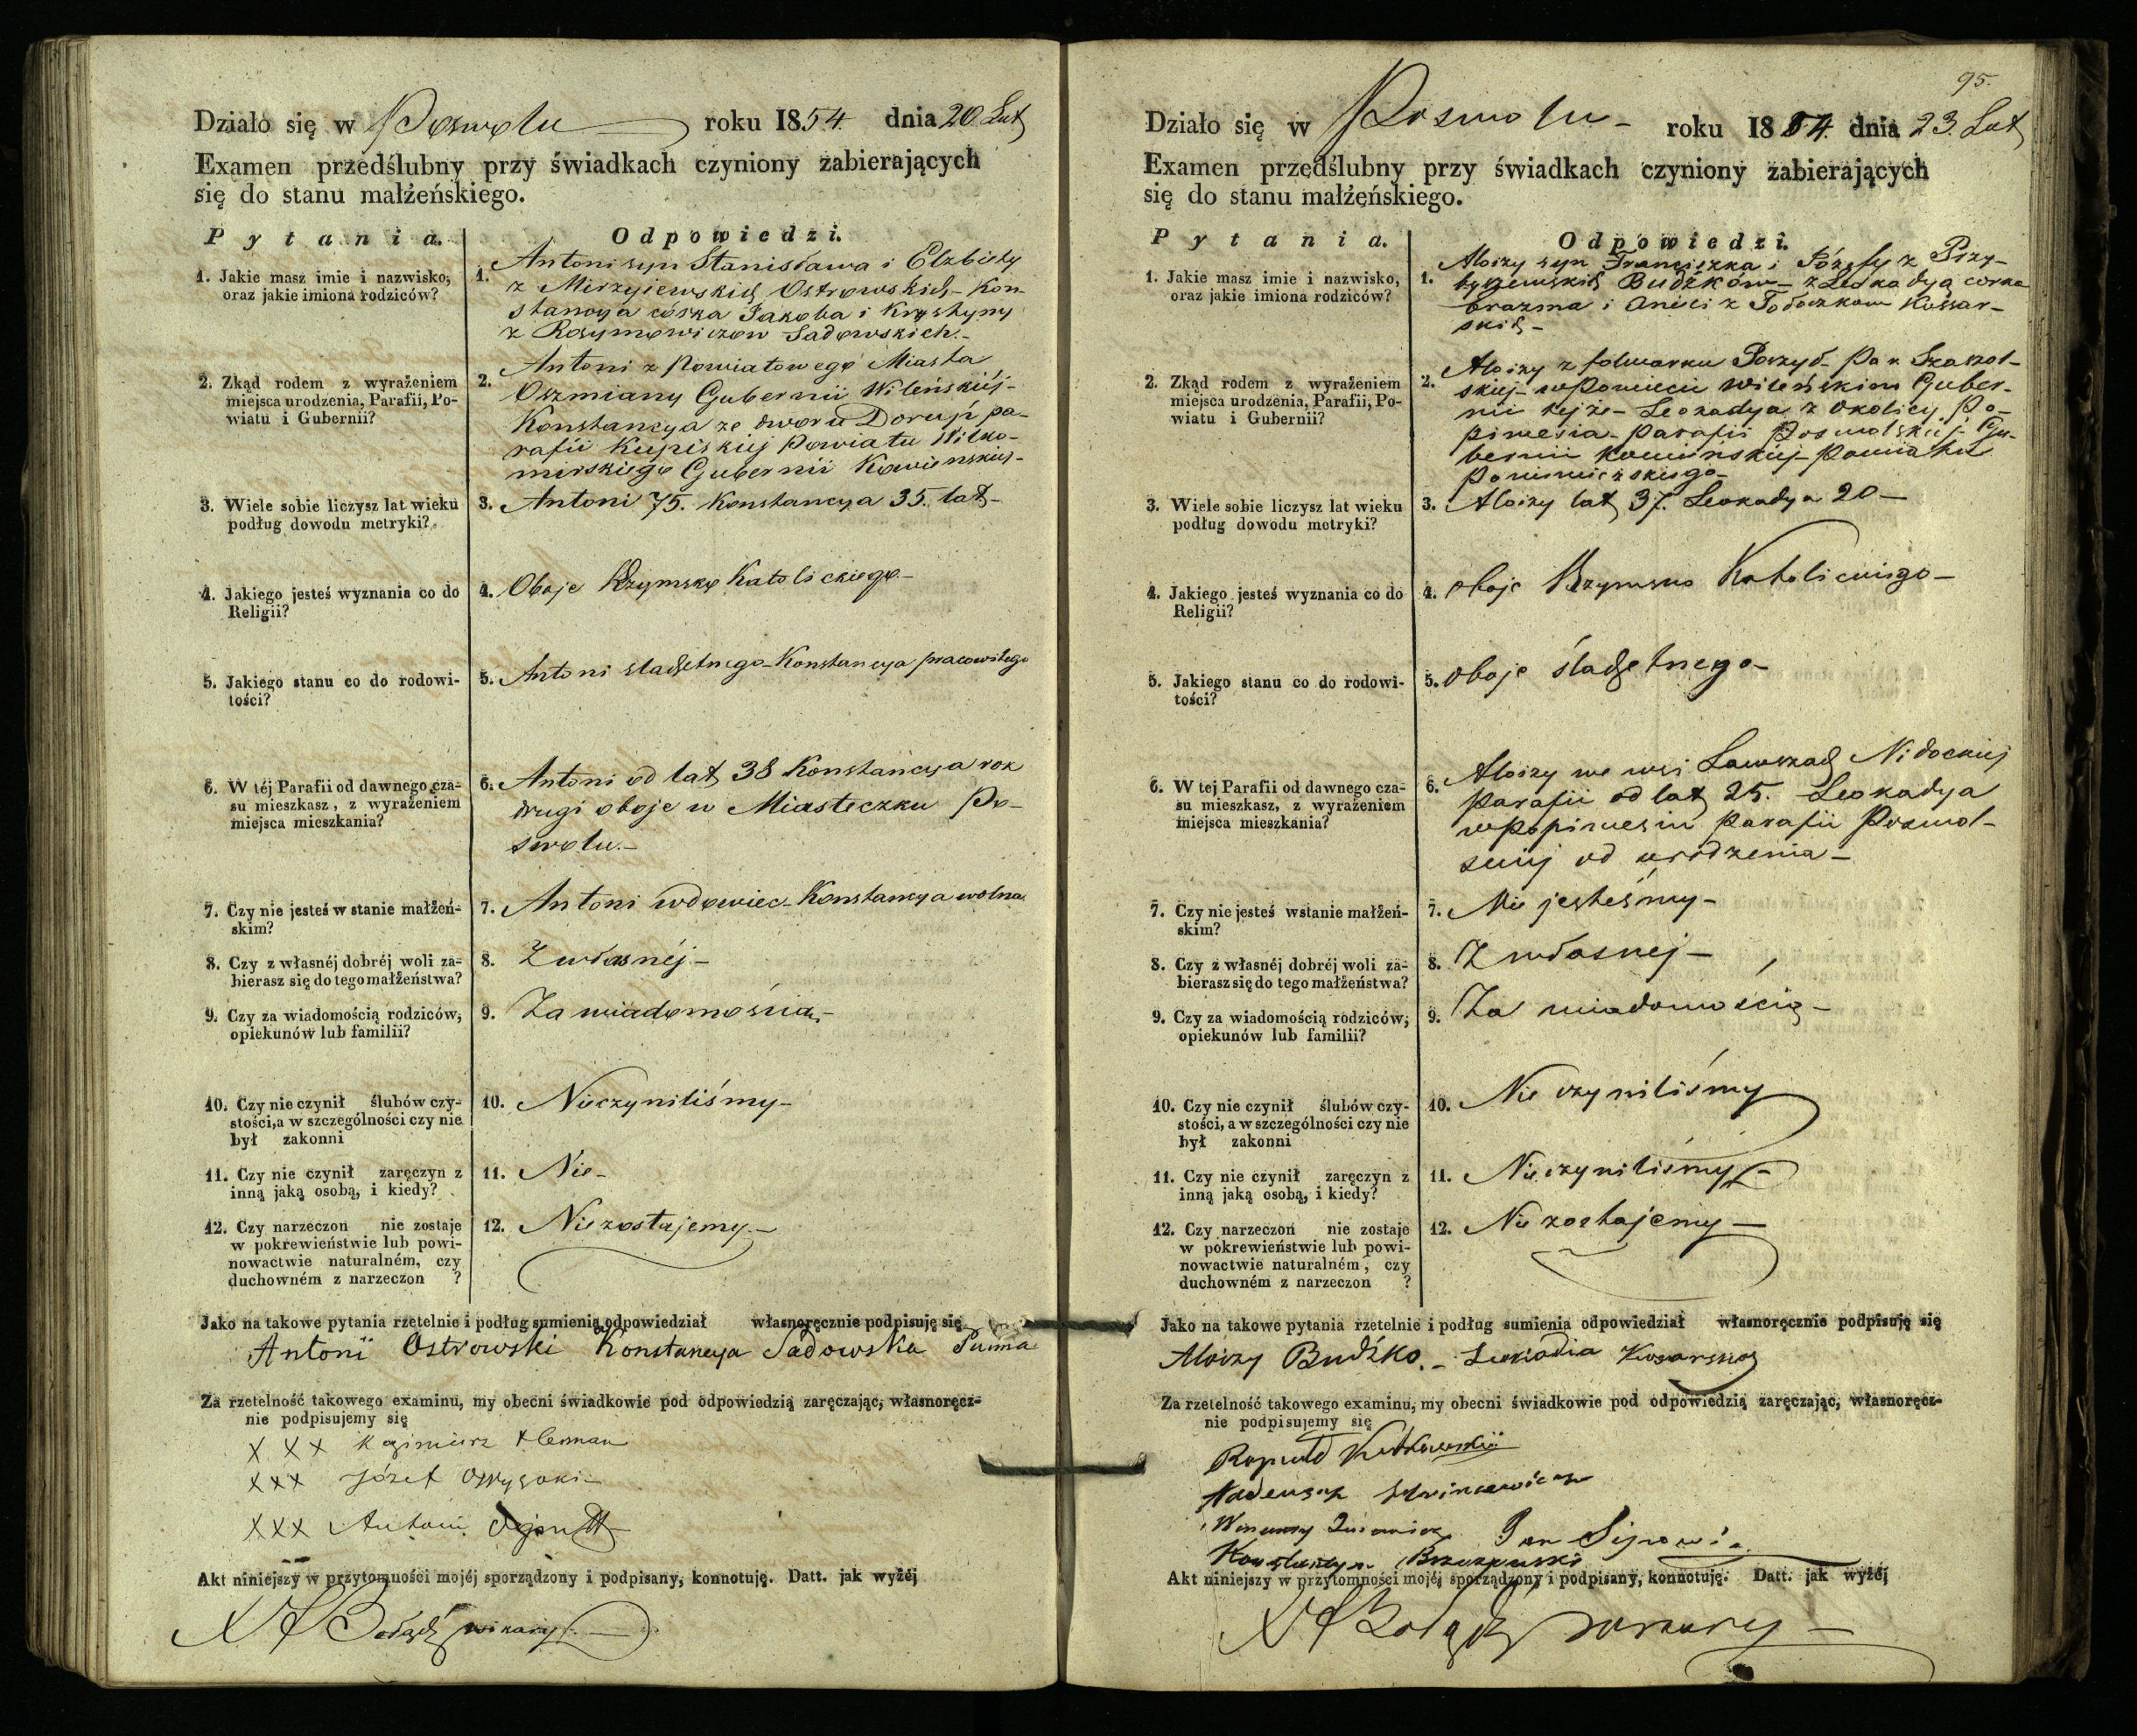 Działo się w Poswolu roku 1854. dnia 20 Lut
Examen przedślubny przy świadkach czyniony zabierających
się do stanu małżeńskiego.
Pytania. Odpowiedzi.
1. Jakie masz imie i nazwisko,
oraz jakie imiona rodziców?
1. Antoni syn Stanisława i Elzbiety
z Ostrowskich Kon-
stancya córka Jakoba i Krystyny
z Rosymowiczow Sadowskich.-
2. Zkąd rodem z wyrażeniem
miejsca urodzenia, Parafii, Po-
wiatu i Gubernii?
2. Antoni z Powiatowego Miasta
Oszmiany Gubernii Wilenskiéj-
Konstancya ze dworu pa-
rafii Kupiskiej Powiatu Wilko-
mirskiego Gubernii Kowienskiej-
3. Wiele sobie liczysz lat wieku
podług dowodu metryki?
3. Antoni 75. Konstancya 35. lat-
4. Jakiego jesteś wyznania co do
Religii?
4. Oboje Rzymsko Katolickiego-
5. Jakiego stanu co do rodowi-
tości?
5. Antoni szlachetnego-Konstancya pracowitego
6. W téj Parafii od dawnego cza-
su mieszkasz, z wyrażeniem
miejsca mieszkania?
6. Antoni od lat 38 Konstancya rok
drugi oboje w Miasteczku Po-
swolu.-
7. Czy nie jesteś w stanie małżeń-
skim?
7. Antoni wdowiec-Konstancya wolna
8. Czy z własnéj dobréj woli za-
bierasz się do tego małżeństwa?
8. Z własnéj-
9. Czy za wiadomością rodziców,
opiekunów lub familii?
9. Za wiadomością-
10. Czy nie czynił ślubów czy-
stości, a w szczególności czy nie
był zakonni
10. Nieczyniliśmy-
11. Czy nie czynił zaręczyn z
inną jaką osobą, i kiedy?
11. Nie-
12. Czy narzeczon nie zostaje
w pokrewieństwie lub powi-
nowactwie naturalném, czy
duchowném z narzeczon ?
12. Niezostajemy-
Jako na takowe pytania rzetelnie i podług sumienia odpowiedział własnoręcznie podpisuję się
Antoni Ostrowski Konstancya Sadowska Panna
Za rzetelność takowego examinu, my obecni świadkowie pod odpowiedzią zaręczając, własnoręcz-
nie podpisujemy się
X X X Kazimierz
XXX Józef
XXX Antoni
Akt niniejszy w przytomności mojéj sporządzony i podpisany, konnotuję. Datt. jak wyżéj
wikary
95.
Działo się w Poswolu- roku 1854. dnia 23. Lut
Examen przedślubny przy świadkach czyniony zabierających
się do stanu małżeńskiego.
Pytania. Odpowiedzi.
1. Jakie masz imie i nazwisko,
oraz jakie imiona rodziców?
1. Aloizy syn Franciszka i Józefy z Przy-
Budźków- z Leokadyą corka
Erazma i Anieli z Kossar-
skich-
2. Zkąd rodem z wyrażeniem
miejsca urodzenia, Parafii, Po-
wiatu i Gubernii?
2. Aloizy z folwarku Par.
skiej- w Powiecie Wileńskim Guber-
nii tejże- Leokadya z okolicy Po-
piwesia- parafii Poswolskiej- Gu-
bernii Kowienskiej- Powiatu
Poniewiezskiego-
3. Wiele sobie liczysz lat wieku
podług dowodu metryki?
3. Aloizy lat 37. Leokadya 20-
4. Jakiego jesteś wyznania co do
Religii?
4. oboje Rzymsko Katolickiego-
5. Jakiego stanu co do rodowi-
tości?
5. oboje szlachetnego-
6. W tej Parafii od dawnego cza-
su mieszkasz, z wyrażeniem
miejsca mieszkania?
6. Aloizy we wsi
parafii od lat 25. Leokadya
w Popiwesiu parafii Poswol-
skiej od urodzenia-
7. Czy nie jesteś wstanie małżeń-
skim?
7. Nie jesteśmy-
8. Czy z własnéj dobréj woli za-
bierasz się do tego małżeństwa?
8. Z własnej-
9. Czy za wiadomością rodziców,
opiekunów lub familii?
9. Za wiadomością-
10. Czy nie czynił ślubów czy-
stości, a w szczególności czy nie
był zakonni
10. Nie czyniliśmy
11. Czy nie czynił zaręczyn z
inną jaką osobą, i kiedy?
11. Nieczyniliśmy-
12. Czy narzeczon nie zostaje
w pokrewieństwie lub powi-
nowactwie naturalném, czy
duchowném z narzeczon ?
12. Nie zostajemy-
Jako na takowe pytania rzetelnie i podług sumienia odpowiedział własnoręcznie podpisuję się
Aloizy Budźko.- Leokadia Kosarska
Za rzetelność takowego examinu, my obecni świadkowie pod odpowiedzią zaręczając, własnoręcz-
nie podpisujemy się
Tadeusz
Wincenty Jan
Konstantyn
Akt niniejszy w przytomności mojéj sporządzony i podpisany, konnotuję. Datt. jak wyżéj